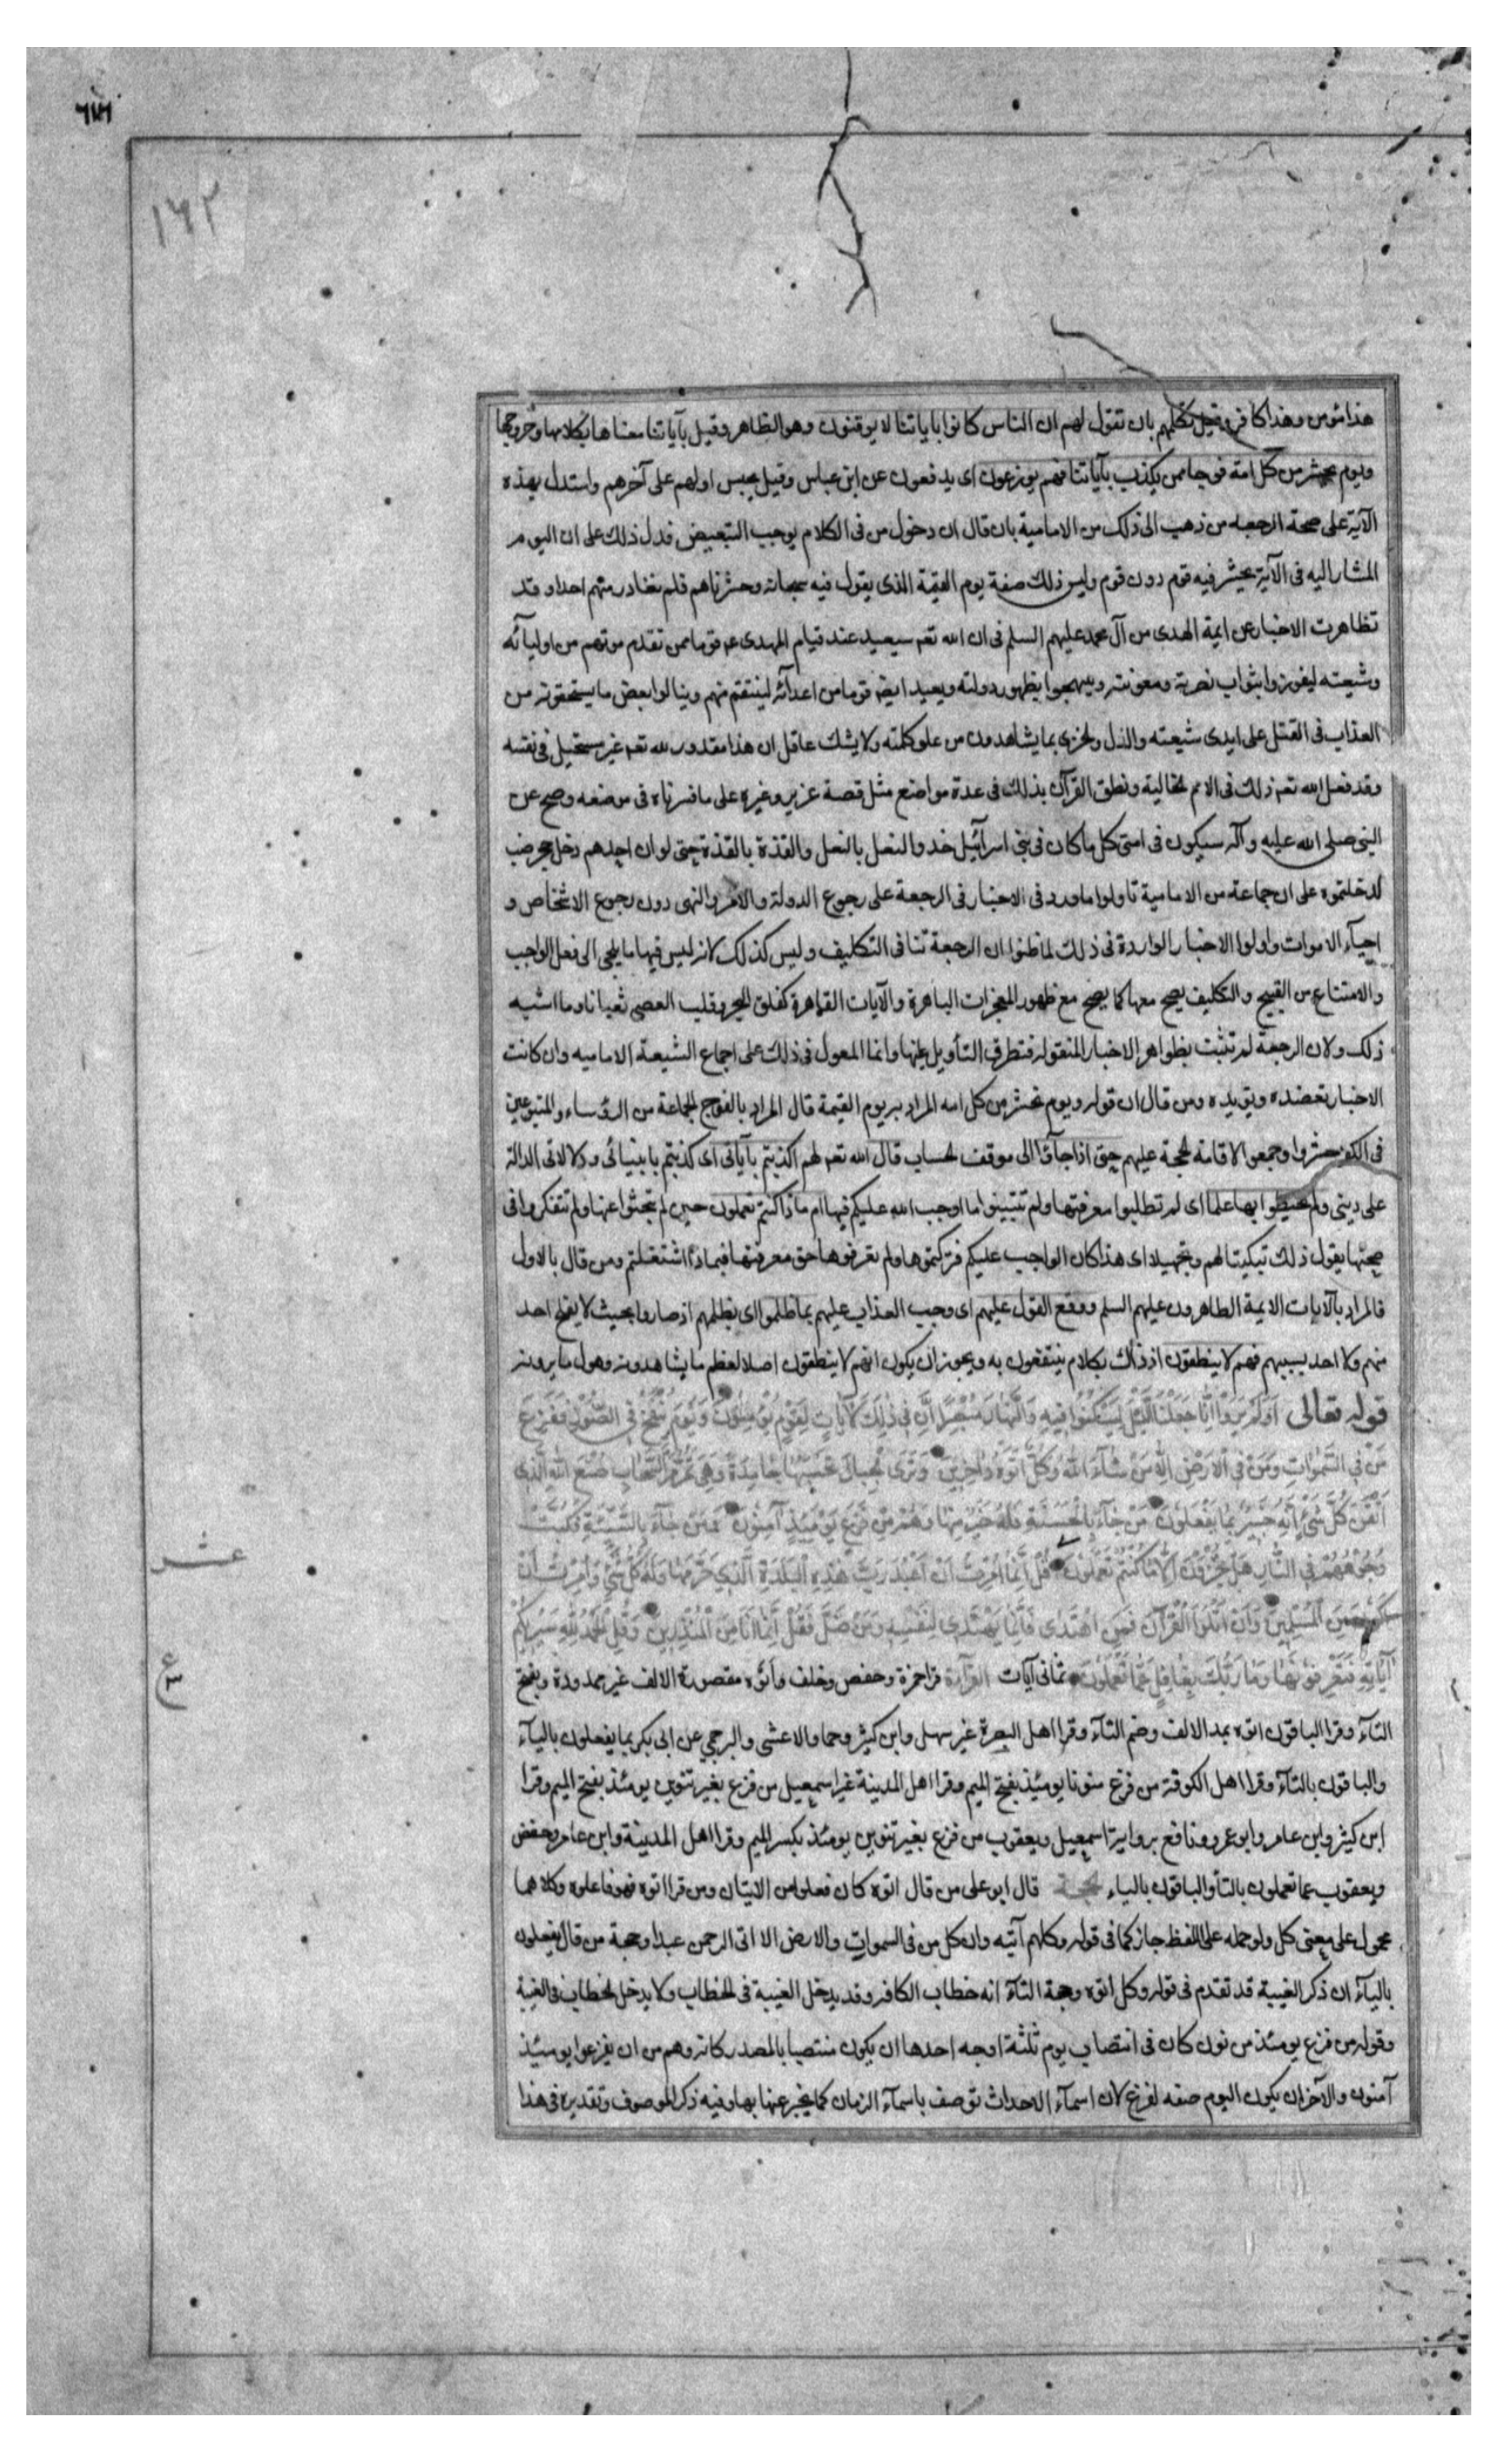 ٦٧٦
١٦٢
هذا مؤمن وهذا كافر وقيل تكلمهم بان تقول لهم ان الناس كانوا باياتنا لا يوقنون وهو الظاهر وقيل بآياتنا معناها بكلامها وخروجها
ويوم نحشر من كل امة فوجا ممن يكذب بآياتنا فهم يوزعون اى يدفعون عن ابن عباس وقيل يحبس اولهم على آخرهم واستدل بهذه
الآية على صحة الرجعه من ذهب الى ذلك من الامامية بان قال ان دخول من فى الكلام يوجب التبعيض فدل ذلك على ان اليوم
المشار اليه فى الآية يحشر فيه قوم دون قوم وليس ذلك صفة يوم القيمة الذى يقول فيه سبحانه وحشرناهم فلم نغادر منهم احدا و قد
تظاهرت الاخبار عن ايمة الهدى من آل محمد عليهم السلم فى ان الله تعه سيعيد عند قيام المهدى عه قوما ممن تقدم موتهم من اوليآئه
وشيعته ليفوزوا بثواب نصرته ومعونته ويبتهجوا بظهور دولته ويعيد ايضه قوما من اعدآئه لينتقم منهم وينالوا بعض ما يستحقونه من
العذاب فى القتل على ايدى شيعته والذل والخزى بما يشاهدون من علو كلمته ولا يشك عاقل ان هذا مقدور لله تعه غير مستحيل فى نفسه
وقد فعل الله تعه ذلك فى الامم الخالية ونطق القرآن بذلك فى عدة مواضع مثل قصة عزير وغيره على ما فسرناه فى موضعه وصح عن
النبى صلى الله عليه وآله سيكون فى امتى كل ما كان فى بنى اسرآئيل حذو النعل بالنعل والقذة بالقذة حتى لو ان احدهم دخل جحر ضب
لدخلتموه على ان جماعة من الامامية تاولوا ما ورد فى الاخبار فى الرجعة على رجوع الدولة والامر والنهى دون رجوع الاشخاص و
احيآء الاموات واولوا الاخبار الواردة فى ذلك لما ظنوا ان الرجعة تنافى التكليف وليس كذلك لانه ليس فيها ما يلجى الى فعل الواجب
والامتناع من القبيح والتكليف يصح معها كما يصح مع ظهور المعجزات الباهرة والآيات القاهرة كفلق البحر وقلب العصى ثعبانا وما اشبه
ذلك ولان الرجعة لم تثبت بظواهر الاخبار المنقوله فتطرق التأويل عليها وانما المعول فى ذلك على اجماع الشيعة الاماميه وان كانت
الاخبار تعضده وتؤيده ومن قال ان قوله ويوم نحشر من كل امه المراد به يوم القيمة قال المراد بالفوج الجماعة من الرؤساء والمتبوعين
فى الكفر حشروا وجمعوا لاقامة الحجة عليهم حتى اذا جآؤا الى موقف الحساب قال الله تعه لهم اكذبتم بآياتى اى كذبتم بانبيائى ودلالاتى الدالة
على دينى ولم تحيطوا بها علما اى لم تطلبوا معرفتها ولم تتبينوا ما اوجب الله عليكم فيها ام ماذا كنتم تعملون حين لم تبحثوا عنها ولم تتفكروا فى
صحتها يقول ذلك تبكيتا لهم وتجهيلا اى هذا كان الواجب عليكم فتركتموها ولم تعرفوها حق معرفتها فبماذا اشتغلتم ومن قال بالاول
فالمراد بالآيات الايمة الطاهرون عليهم السلم ووقع القول عليهم اى وجب العذاب عليهم بما ظلموا اى بظلمهم اذ صاروا بحيث لا يفلح احد
منهم ولا احد بسببهم فهم لا ينطقون اذ ذاك بكلام ينتفعون به ويجوز ان يكون انهم لا ينطقون اصلا لعظم ما يشاهدونه وهول ما يرونه
قوله تعالى اَوَلَمْ يَرَوْا اَنَّا جَعَلْنَا اللَّيْلَ لِيَسْكُنُوا فِيهِ وَالنَّهَارَ مُبْصِرًا اِنَّ فِى ذٰلِكَ لَآيَاتٍ لِقَوْمٍ يُؤْمِنُونَ وَيَوْمَ يُنْفَخُ فِى الصُّورِ فَفَزِعَ
مَنْ فِى السَّمٰوَاتِ وَمَنْ فِى الْاَرْضِ اِلَّا مَنْ شَآءَ اللهُ وَكُلٌّ اَتَوْهُ دَاخِرِينَ وَتَرَى الْجِبَالَ تَحْسَبُهَا جَامِدَةً وَهِىَ تَمُرُّ مَرَّ السَّحَابِ صُنْعَ اللهِ الَّذِى
اَتْقَنَ كُلَّ شَىْءٍ اِنَّهُ خَبِيرٌ بِمَا يَفْعَلُونَ مَنْ جَآءَ بِالْحَسَنَةِ فَلَهُ خَيْرٌ مِنْهَا وَهُمْ مِنْ فَزَعِ يَوْمَئِذٍ آمِنُونَ وَمَنْ جَآءَ بِالسَّيِّئَةِ فَكُبَّتْ
وُجُوهُهُمْ فِى النَّارِ هَلْ تُجْزَوْنَ اِلَّا مَا كُنْتُمْ تَعْمَلُونَ قُلْ اِنَّمَا اُمِرْتُ اَنْ اَعْبُدَ رَبَّ هٰذِهِ الْبَلْدَةِ الَّذِى حَرَّمَهَا وَلَهُ كُلُّ شَىْءٍ وَاُمِرْتُ اَنْ
عشر
اَكُونَ مِنَ الْمُسْلِمِينَ وَاَنْ اَتْلُوَا الْقُرْآنَ فَمَنِ اهْتَدٰى فَاِنَّمَا يَهْتَدِى لِنَفْسِهِ وَمَنْ ضَلَّ فَقُلْ اِنَّمَا اَنَا مِنَ الْمُنْذِرِينَ وَقُلِ الْحَمْدُ لِلّٰهِ سَيُرِيكُمْ
آيَاتِهِ فَتَعْرِفُونَهَا وَمَا رَبُّكَ بِغَافِلٍ عَمَّا تَعْمَلُونَ ثمانى آيات القرآءة قرا حمزة وحفص وخلف وأتوه مقصورة الالف غير ممدودة وبفتح
ع
التآء وقرا الباقون اتوه بمد الالف وضم التآء وقرا اهل البصرة غير سهل وابن كثير وحماد والاعشى والبرجمى عن ابى بكر بما يفعلون باليآء
والباقون بالتآء وقرا اهل الكوفة من فزع منونا يومئذ بفتح الميم وقرا اهل المدينة غير اسمعيل من فزع بغير تنوين يومئذ بفتح الميم وقرا
ابن كثير وابن عامر وابو عمرو ونافع برواية اسمعيل ويعقوب من فزع بغير تنوين يومئذ بكسر الميم وقرا اهل المدينة وابن عامر وحفص
ويعقوب عما تعملون بالتآء والباقون بالياء الحجة قال ابو على من قال اتوه كان فعلوه من الاتيان ومن قرا اتوه فهو فاعلوه وكلاهما
محمول على معنى كل ولو حمله على اللفظ جاز كما فى قوله وكلهم آتيه وان كل من فى السموات والارض الا اتى الرحمن عبدا وحجة من قال يفعلون
باليآء ان ذكر الغيبة قد تقدم فى قوله وكل اتوه وحجة التآء انه خطاب الكافر وقد يدخل الغيبة فى الخطاب ولا يدخل الخطاب فى الغيبة
وقوله من فزع يومئذ من نون كان فى انتصاب يوم ثلثة اوجه احدها ان يكون منتصبا بالمصدر كانه وهم من ان يفزعوا يومئذ
آمنون والآخر ان يكون اليوم صفه لفزع لان اسمآء الاحداث توصف باسمآء الزمان كما يخبر عنها بها وفيه ذكر الموصوف وتقديره فى هذا